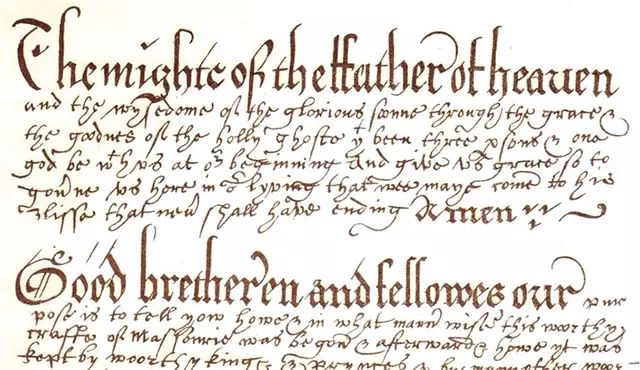 The mighte of the ffather of heaven
and the wysedome of the glorious soonne through the grace &
the goodnes of the holly ghoste yt been three psons & one
god be wth us at or beginning and give us grace so to
gov'ne us here in or lyving that wee maye come to his
blisse that nev' shall have ending Amen
Good bretheren and fellowes our pur
pose is to tell yow howe & in what mann' wise this woorthy
crafte of Massonrie was begon & afterwards howe yt was
kept by woorthy kings & Prynces & by many other woor